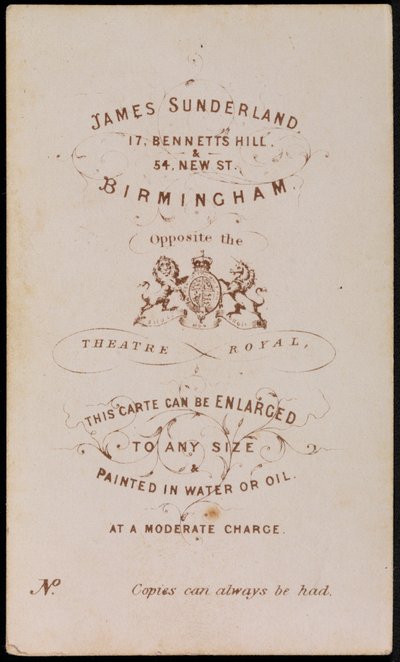 JAMES SUNDERLAND
17, BENNETTS HILL.
&
54, NEW ST.
BIRMINGHAM
Opposite the
THEATRE ROYAL,
THIS CARTE CAN BE ENLARGED
TO ANY SIZE
&
PAINTED IN WATER OR OIL.
AT A MODERATE CHARGE.
No. Copies can always be had.